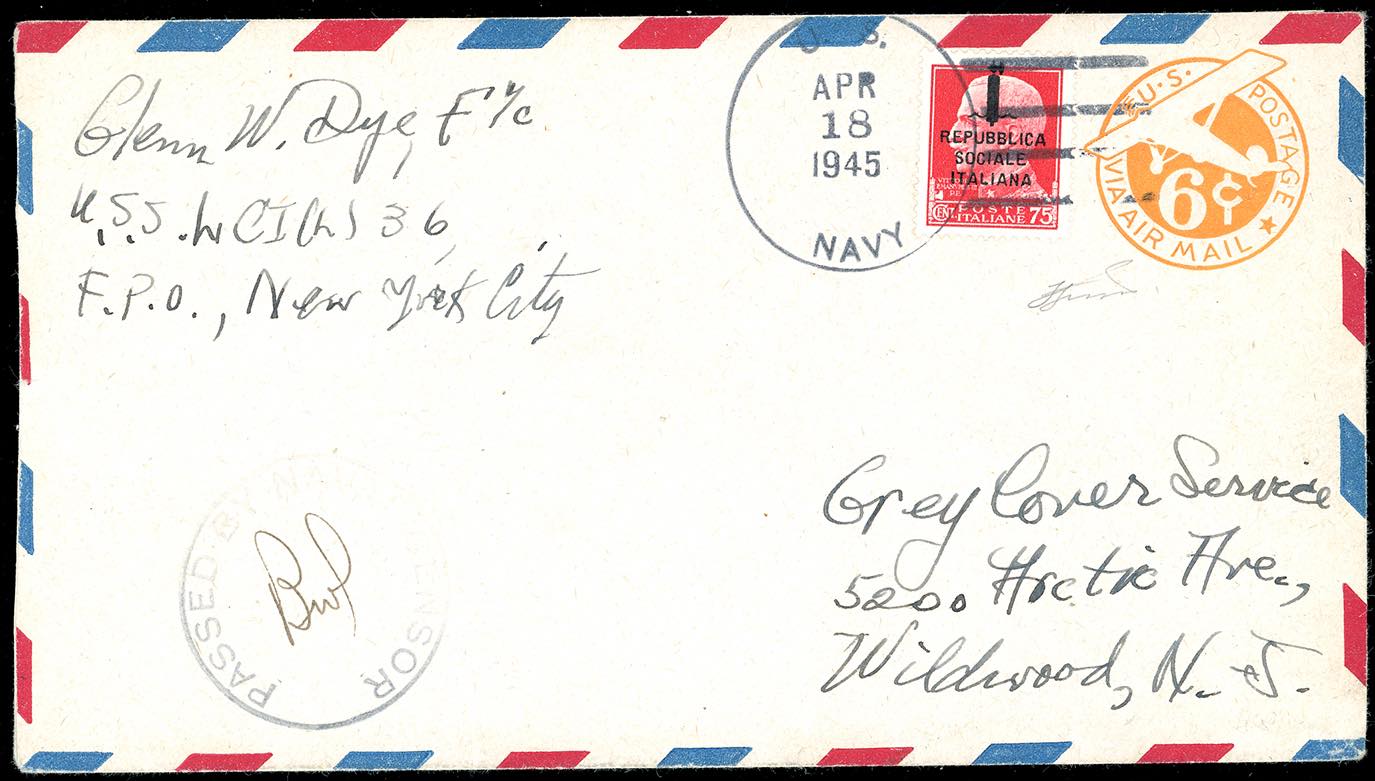 Glenn W. Dye, F 1/c
U.S.S. LCI(L) 36,
F.P.O., New York City
U. S.
APR
18
1945
NAVY
REPUBBLICA
SOCIALE
ITALIANA
CENT. POSTE
ITALIANE 75
U.S. POSTAGE
VIA AIR MAIL
6¢
Grey Cover Service
5200 Arctic Ave.,
Wildwood, N. J.
PASSED BY NAVAL CENSOR